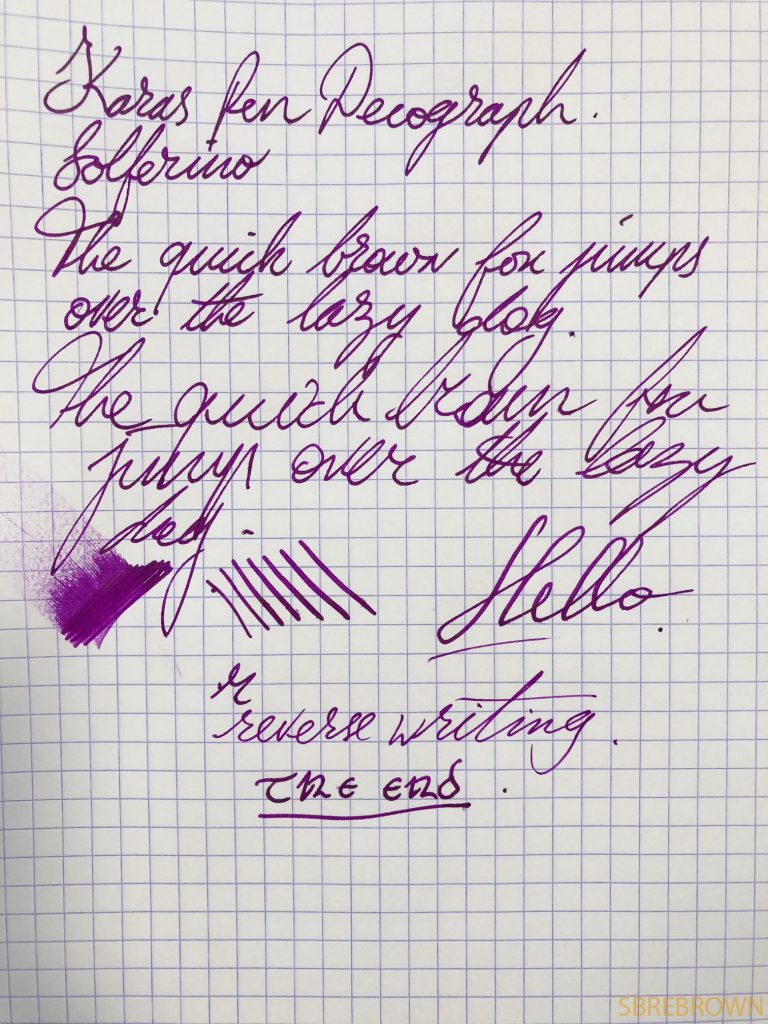 Karas Pen Decograph.
Solferino
The quick brown fox jumps
over the lazy dog.
The quick brown fox
jumps over the lazy
dog.
Hello.
r
reverse writing.
THE END.
SBREBROWN